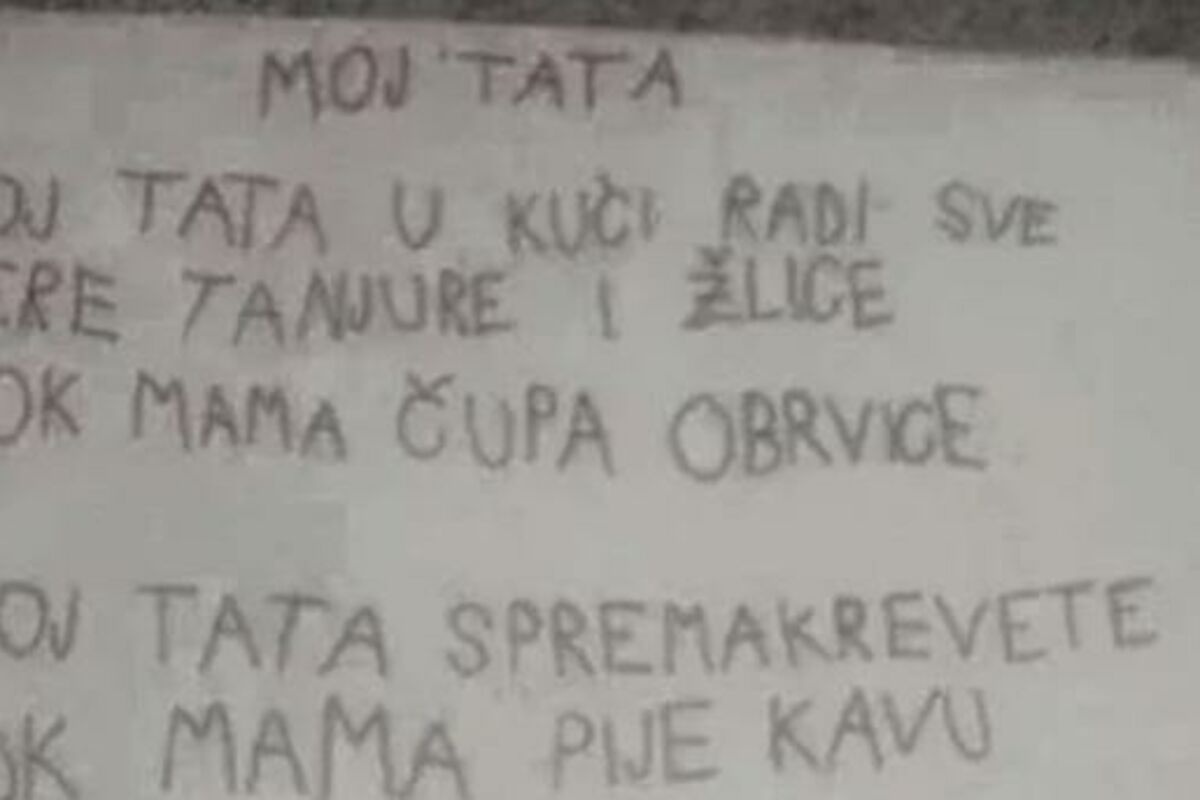 MOJ TATA
OJ TATA U KUČI RADI SVE
ERE TANJURE I ŽLICE
OK MAMA ČUPA OBRVICE
OJ TATA SPREMA KREVETE
OK MAMA PIJE KAVU